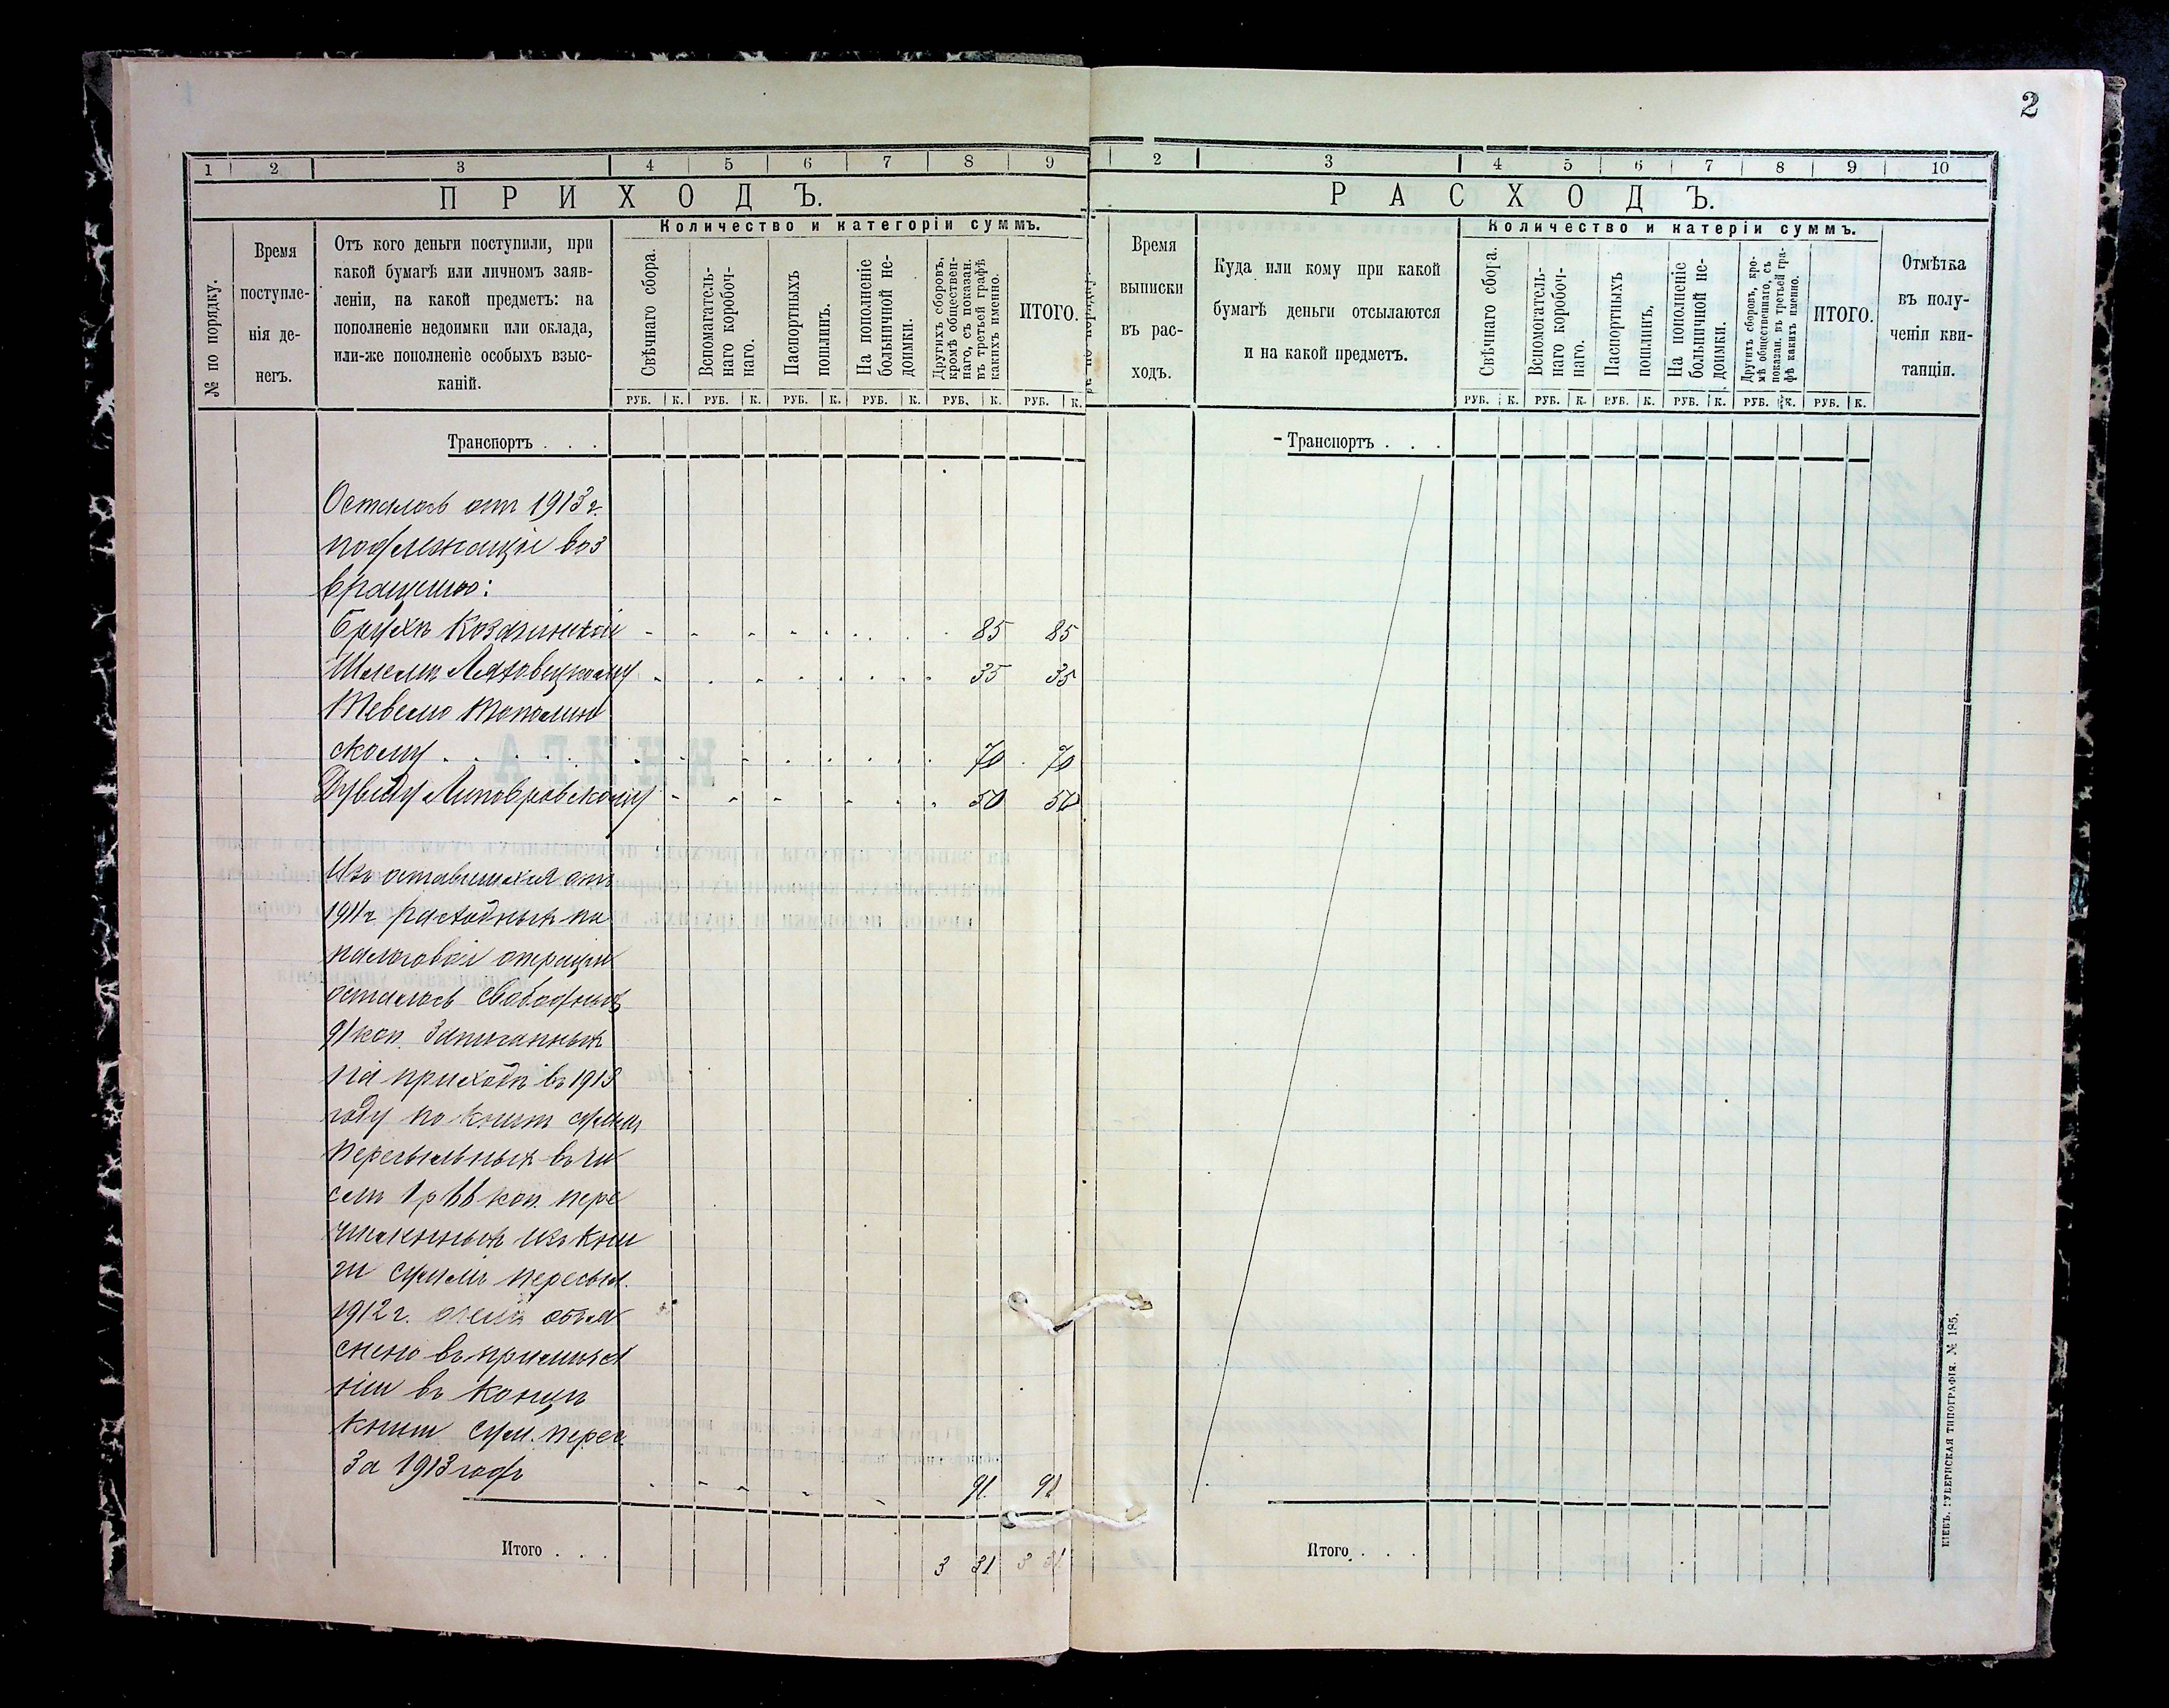 2
1 2 3 4 5 6 7 8 9
ПРИХОДЪ.
Количество и категоріи суммъ.
№ по порядку.
Время
поступле-
нія де-
негъ.
Отъ кого деньги поступили, при
какой бумагѣ или личномъ заяв-
леніи, на какой предметъ: на
пополненіе недоимки или оклада,
или-же пополненіе особыхъ взыс-
каній.
Свѣчнаго сбора.
Вспомагатель-
наго коробоч-
наго.
Паспортныхъ
пошлинъ.
На пополненіе
больничной не-
доимки.
Другихъ сборовъ,
кромѣ обществен-
наго, съ показан.
въ третьей графѣ
какихъ именно.
ИТОГО.
РУБ. К. РУБ. К. РУБ. К. РУБ. К. РУБ. К. РУБ. К.
Транспортъ . . .
Осталось отъ 1913 г.
подлежащіе воз
вращенію:
Брухѣ Козлинской 85 85
Шлемѣ Ляховецкому 35 35
Тевелю Тополин
скому 70 70
Дувиду Липовровскому 50 50
Изъ оставшихся отъ
1911 г. расходныхъ по
налоговой операціи
осталось свободныхъ
91 коп. Записанныхъ
на приходъ въ 1913
году по книгѣ суммъ
пересыльныхъ въ чи
слѣ 1 р 66 коп. пере
численныхъ изъ кни
ги суммъ пересыл.
1912 г. о чемъ объя
снено въ примѣча
ніи въ концѣ
книги сум. перес.
За 1913 годъ 91 91
Итого . . . 3 31 3 31
2 3 4 5 6 7 8 9 10
РАСХОДЪ.
Количество и катеріи суммъ.
Время
выписки
въ рас-
ходъ.
Куда или кому при какой
бумагѣ деньги отсылаются
и на какой предметъ.
Свѣчнаго сбора.
Вспомогатель-
наго коробоч-
наго.
Паспортныхъ
пошлинъ.
На пополненіе
больничной не-
доимки.
Другихъ сборовъ, кро-
мѣ общественнаго, съ
показан. въ третьей гра-
фѣ какихъ именно.
ИТОГО.
Отмѣтка
въ полу-
ченіи кви-
танціи.
РУБ. К. РУБ. К. РУБ. К. РУБ. К. РУБ. К. РУБ. К.
Транспортъ . . .
Итого . . .
КІЕВЪ. ГУБЕРНСКАЯ ТИПОГРАФІЯ. № 185.